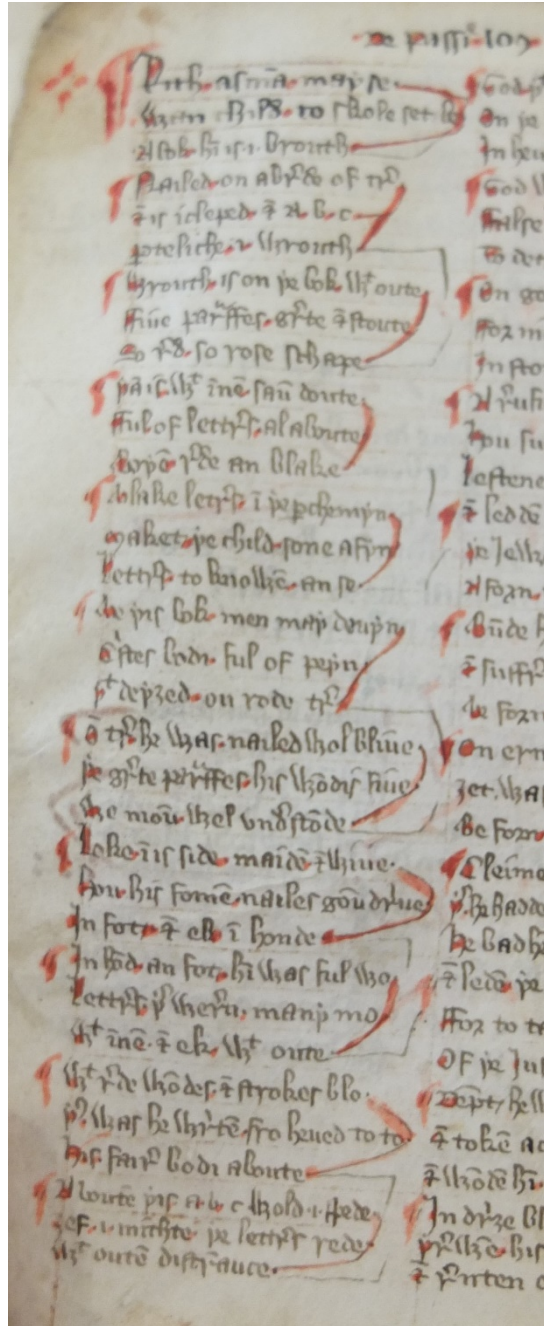 De passi
With asmā may se
Wan child to skole set be
A bok hī is i brouth
Nailed on a brede of tre
t is icleped t a b c
perteliche i wrouth
Wrouth is on þe bok wt oute
ffiue paraffes grete t stoute
So red so rose schape
þ is wt īne saū doute
fful of letteres al aboute
rede an blake
blake letteres ī þe perchemyn
maket þe child sone a fyn
letteres to knowē an se
be þis bok men may deuyn
cristes bodi ful of peyn
þt deyzed on rode tre
ō tre he was nailed wol bliue
þe grete paraffes his wōdis fiue
we moū wel vnderstōde
loke ī is side maidē t wiue
hou his fomē nailes goū driue
In fot t ek ī honde
In hōd an fot hī was ful wo
letteres þer werū many mo
wt īne t ek wt oute
wt rede wōdes t strokes blo
þer was he writē fro heued to to
his faire bodi aboute
Aboute þis a b c wold i spede
zef i mithte þe letteres rede
wt outē distraūce
God
On je
In heu
God
ffalse
On go
ffor m
In sto
þou su
lestene
t ledde
þe Jew
A forn
būde
t suffr
be forn
On ern
zet was
Be forn
Cleime
þer he hadde
he bad
t ledē þe
ffor to
Of þe Ju
t tokē
t wōdē hī